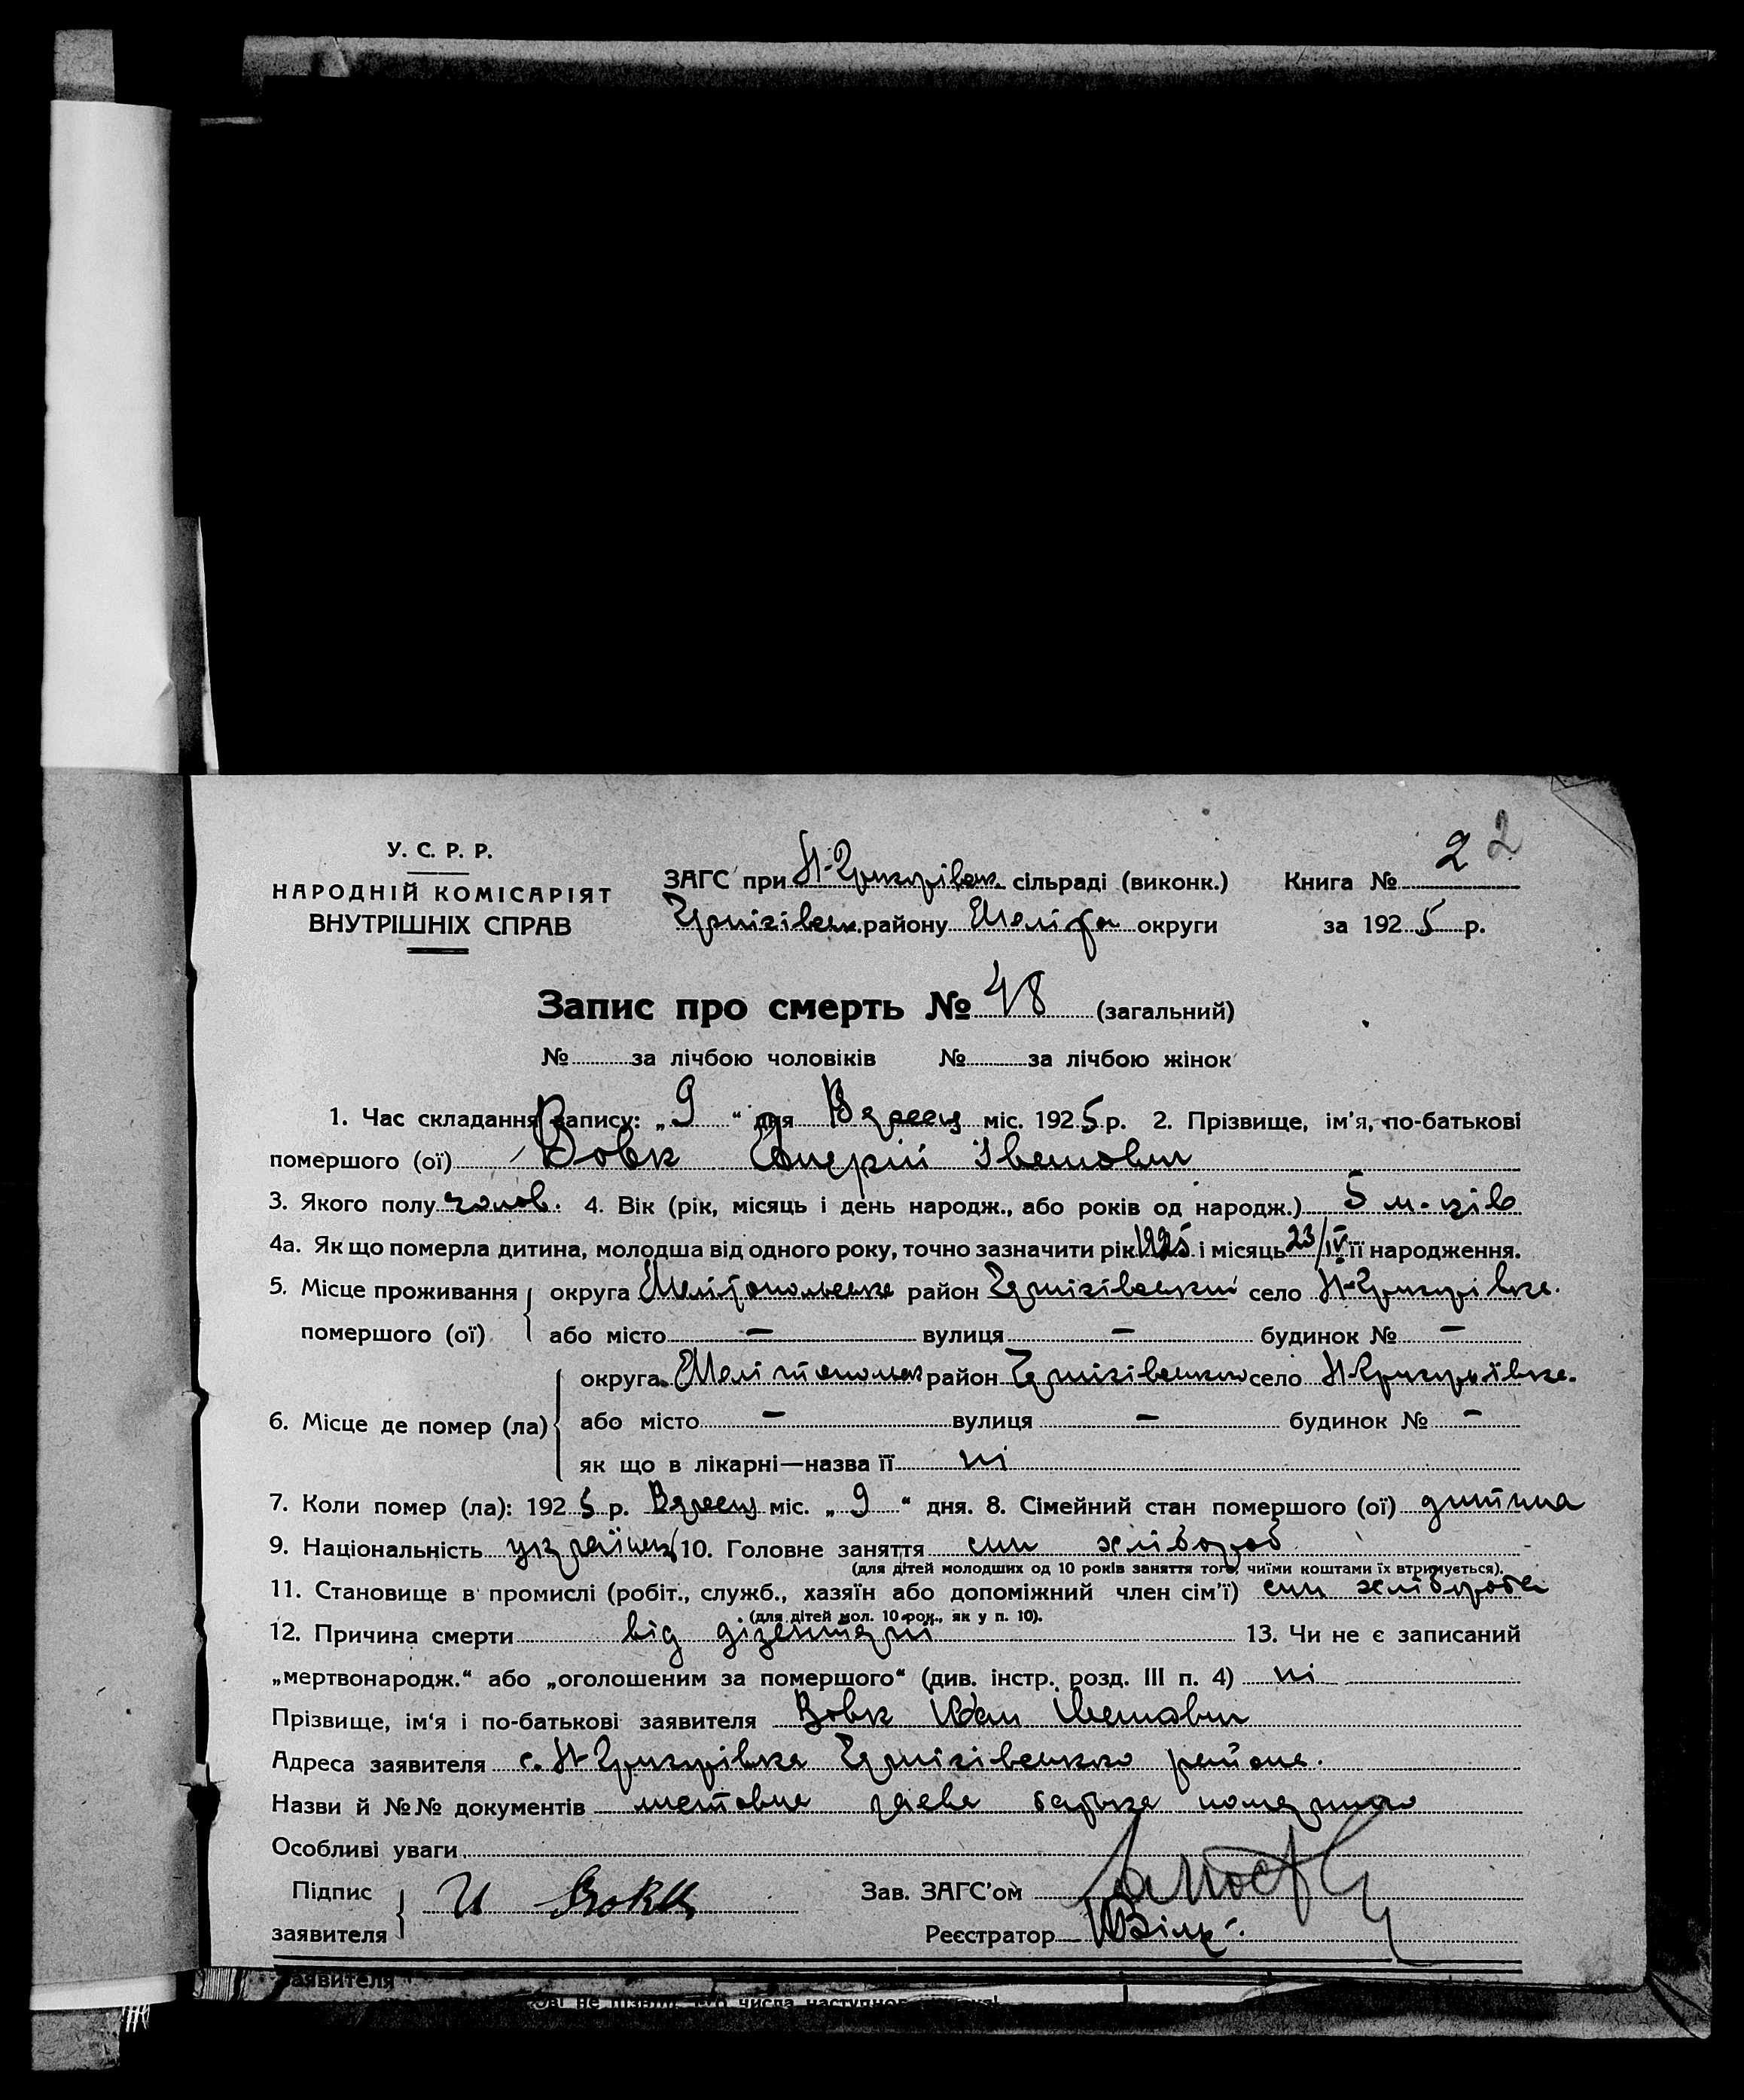 У. С. Р. Р.
НАРОДНІЙ КОМІСАРІЯТ
ВНУТРІШНІХ СПРАВ
ЗАГС при Н-Григорівськ. сільраді (виконк.)
Чернігівськ. району Меліто округи
Книга № 2 2
за 1925 р.
Запис про смерть № 48 (загальний)
№ за лічбою чоловіків № за лічбою жінок
1. Час складання запису: „9“ дня Вересня міс. 1925 р. 2. Прізвище, ім'я, по-батькові
помершого (ої) Вовк Андрій Іванович
3. Якого полу чолов. 4. Вік (рік, місяць і день народж., або років од народж.) 5 м-ців
4а. Як що померла дитина, молодша від одного року, точно зазначити рік 1925 і місяць 23/IV її народження.
5. Місце проживання помершого (ої) округа Мелітопольська район Чернігівський село Н-Григорівка.
або місто — вулиця — будинок № —
6. Місце де помер (ла) округа Мелітопольськ район Чернігівсько село Н-Григорівка.
або місто — вулиця — будинок № —
як що в лікарні—назва її ні
7. Коли помер (ла): 1925 р. Вересня міс. „9“ дня. 8. Сімейний стан помершого (ої) дитина
9. Національність українец 10. Головне заняття син хлібороб
(для дітей молодших од 10 років заняття того, чиїми коштами їх втримується).
11. Становище в промислі (робіт., служб., хазяїн або допоміжний член сім'ї) син хлібороба
(для дітей мол. 10 рок., як у п. 10).
12. Причина смерти від дізентерії 13. Чи не є записаний
„мертвонародж.“ або „оголошеним за помершого“ (див. інстр. розд. III п. 4) ні
Прізвище, ім'я і по-батькові заявителя Вовк Іван Іванович
Адреса заявителя с. Н-Григорівка Чернігівсько района.
Назви й №№ документів заява батька помершого
Особливі уваги
Підпис заявителя И Вовк
Зав. ЗАГС'ом
Реєстратор
заявителя
числа наступного